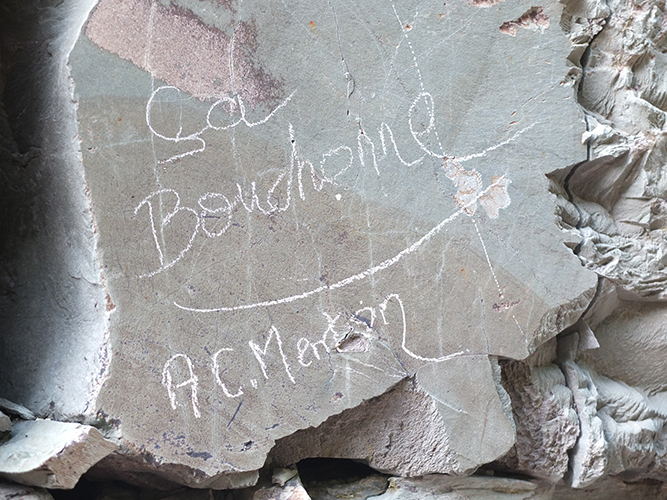 Sa
Bouchonne
A.C. Mention